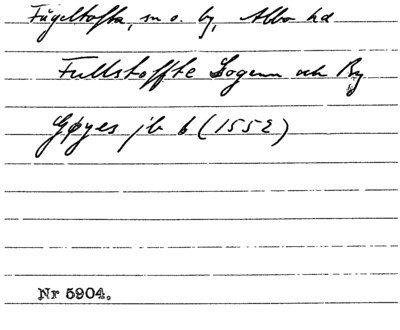 Fågeltofta, sn o. by, Albo hd
Fullstoffte Sogenn och By
Gøyes jb 6 (1552)
Nr 5904.